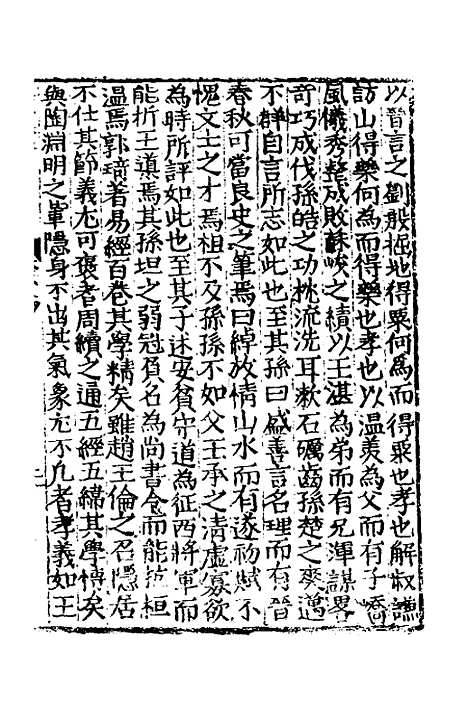 以晉言之劉殷掘地得粟何為而得粟也孝也解叔謙
訪山得藥何為而得藥也孝也以温羡為父而有子嶠
風儀秀整成敗蘇峻之績以王湛為弟而有兄渾謀畧
奇巧成伐孫皓之功枕流洗耳漱石礪齒孫楚之爽邁
不群自言所志如此也至其孫曰盛善言名理而有晉
春秋可當良史之筆焉曰綽放情山水而有遂初賦不
愧文士之才焉祖不及孫孫不如父王承之清虛寡欲
為時所評如此也至其子述安貧守道為征西將軍而
能折王導焉其孫坦之弱冠負名為尚書令而能抗桓
温焉郭琦著易經百卷其學精矣雖趙王倫之召隱居
不仕其節義尤可褒者周續之通五經五緯其學博矣
與陶淵明之軰隱身不出其氣象尤不凡者孝義如王